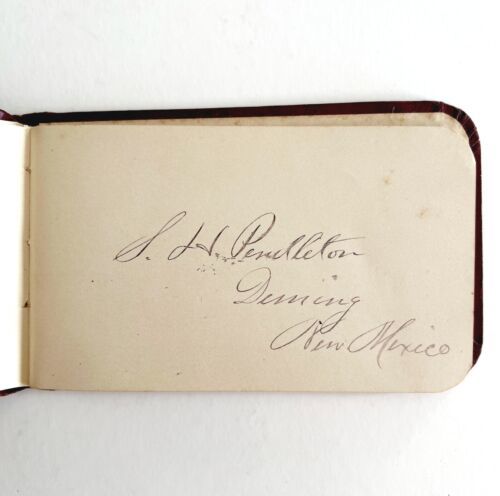 S. H. Pendleton
Deming
New Mexico